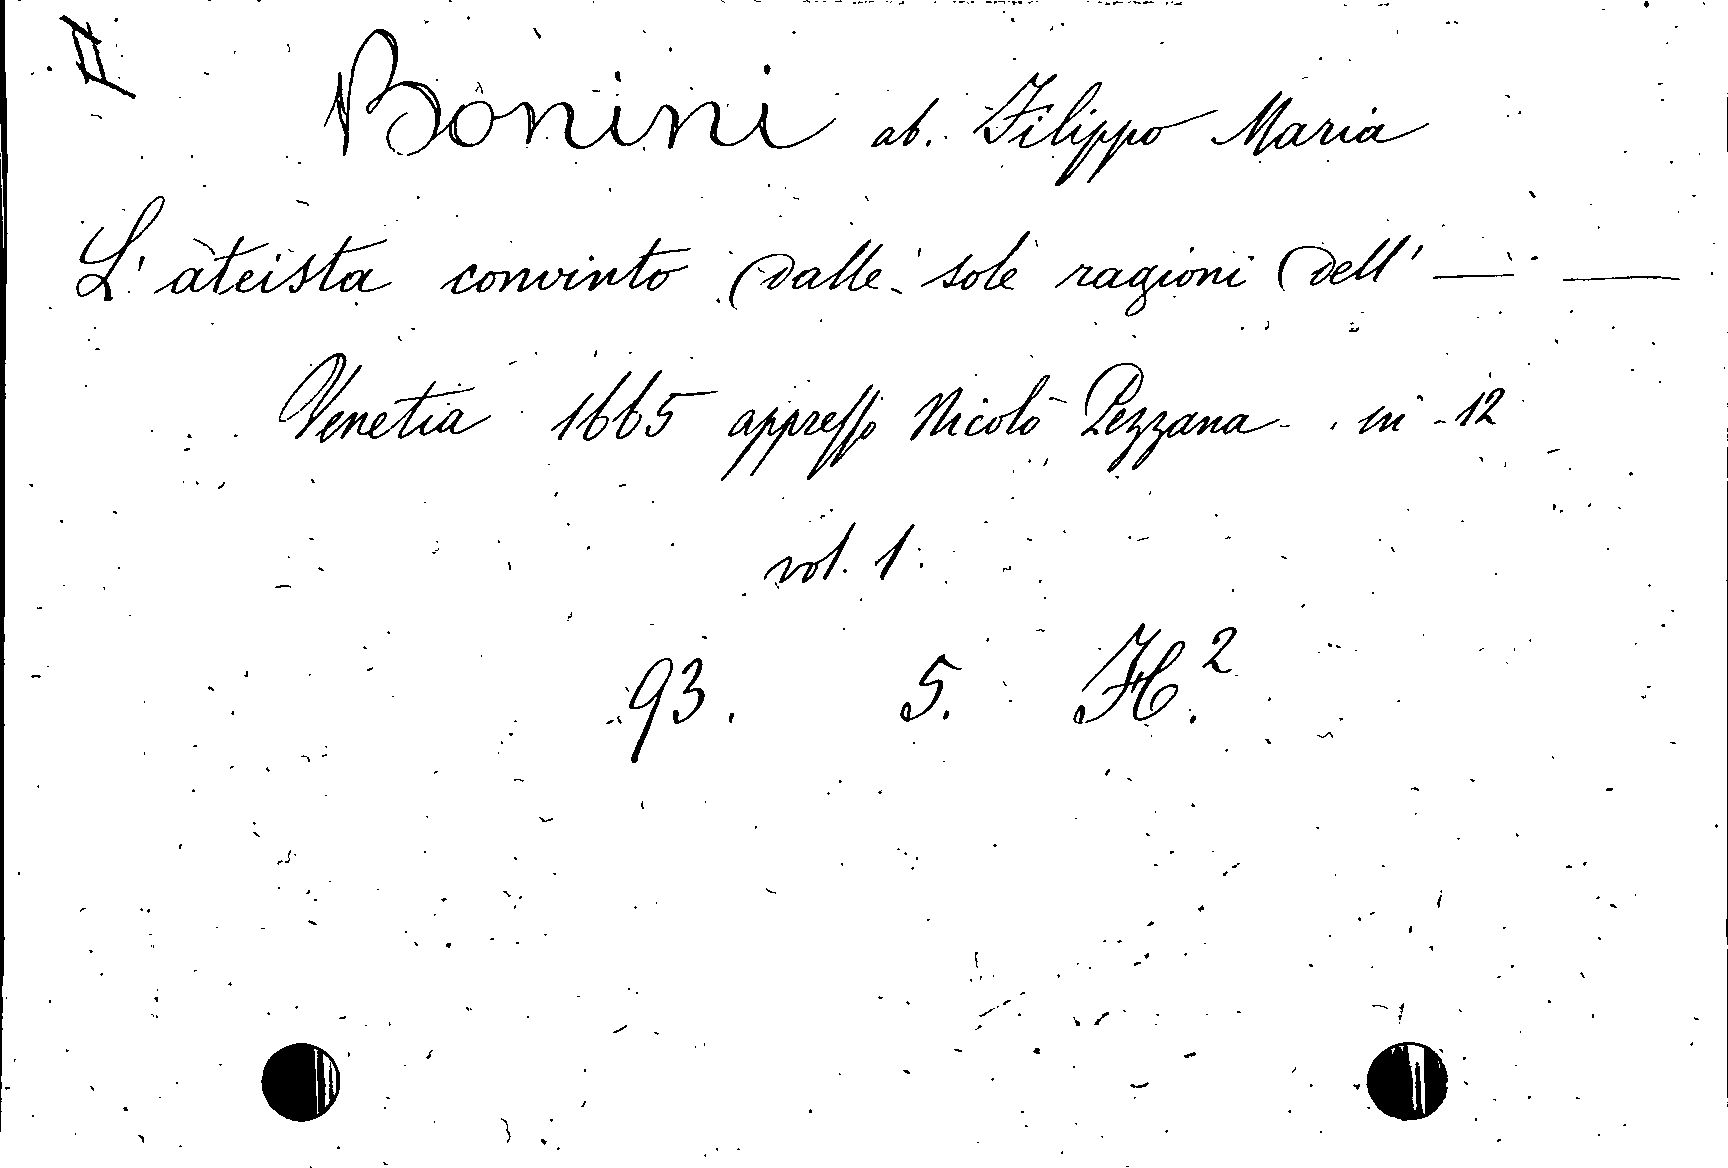 II
Bonini ab. Filippo Maria
L'ateista convinto dalle sole ragioni dell' — —
Venetia 1665 appresso Nicolò Pezzana - in - 12
vol. 1.
93. 5. H.²